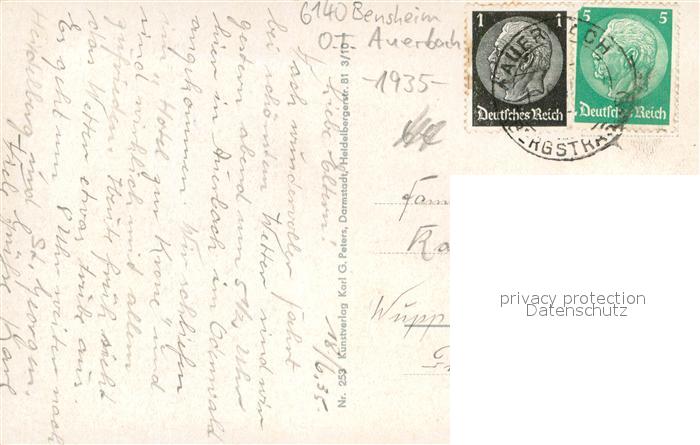 6140 Bensheim
O.T. Auerbach
-1935-
1
Deutsches Reich
5
Deutsches Reich
AUER ECH
BERGSTRA
18/6.35.
Liebe Eltern!
Nach wundervoller Fahrt
bei schönstem Wetter sind wir
gestern abend um 5½ Uhr
hier in Auerbach im Odenwald
angekommen. Wir schliefen
im Hotel zur Krone und
sind mit allem
zufrieden. Heute früh sieht
das Wetter etwas trübe aus.
Es geht um 8 Uhr weiter nach
Heidelberg und St. Georgen.
Viele Grüße Karl
Nr. 253 Kunstverlag Karl G. Peters, Darmstadt, Heidelbergerstr. 81 3/10
Fam
Ka
Wupp
privacy protection
Datenschutz